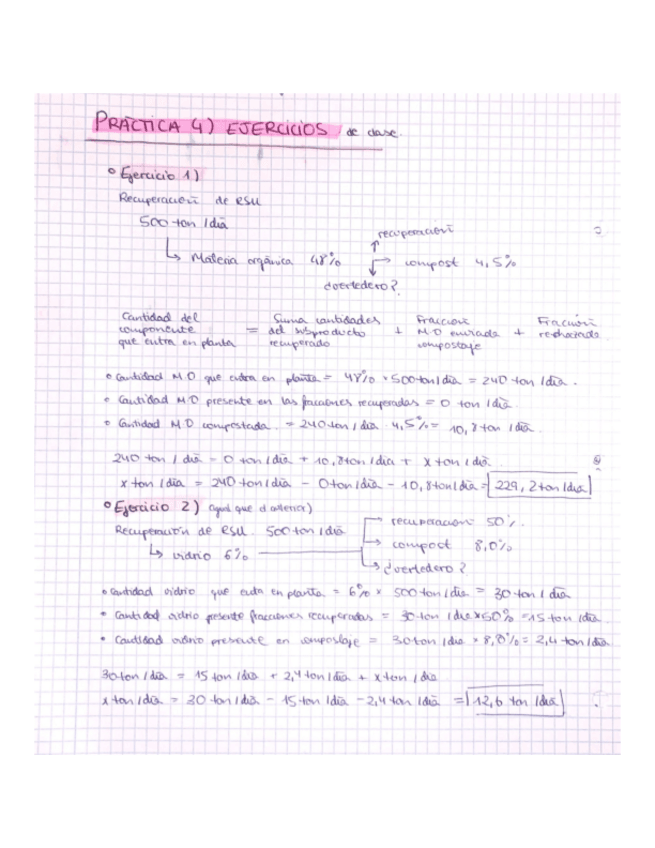 PRÁCTICA 4) EJERCICIOS de clase.
Ejercicio 1)
Recuperación de RSU
500 ton/día
recuperación
Materia orgánica 48% compost 4,5%
¿vertedero?
Cantidad del componente que entra en planta = Suma cantidades del subproducto recuperado + Fracción M.O enviada compostaje + Fracción rechazada
Cantidad MO que entra en planta = 48% × 500 ton/día = 240 ton/día.
Cantidad MO presente en las fracciones recuperadas = 0 ton/día.
Cantidad MO compostada = 240 ton/día 4,5% = 10,8 ton/día.
240 ton/día = 0 ton/día + 10,8 ton/día + x ton/día
x ton/día = 240 ton/día - 0 ton/día - 10,8 ton/día = 229,2 ton/día
Ejercicio 2) igual que el anterior)
Recuperación de RSU. 500 ton/día recuperación 50%.
vidrio 6% compost 8,0%
¿vertedero?
Cantidad vidrio que entra en planta = 6% × 500 ton/día = 30 ton/día
Cantidad vidrio presente fracciones recuperadas = 30 ton/día × 50% = 15 ton/día
Cantidad vidrio presente en compostaje = 30 ton/día × 8,0% = 2,4 ton/día
30 ton/día = 15 ton/día + 2,4 ton/día + x ton/día
x ton/día = 30 ton/día - 15 ton/día - 2,4 ton/día = 12,6 ton/día